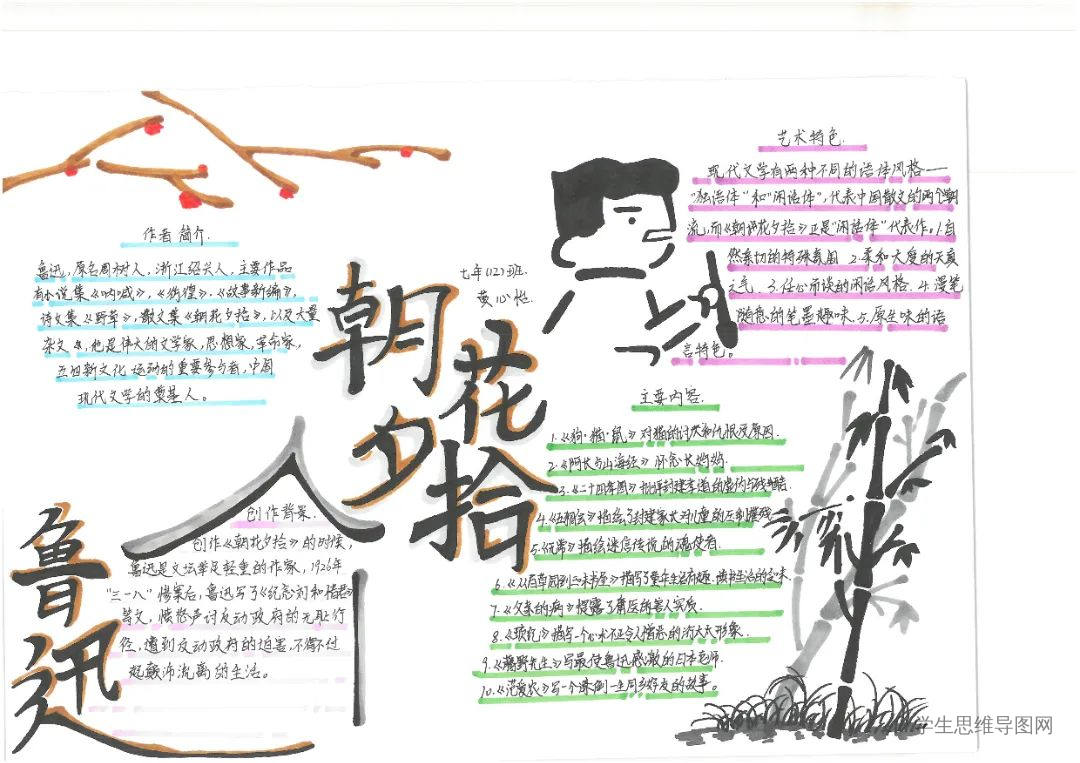 作者简介.
鲁迅，原名周树人，浙江绍兴人，主要作品
有小说集《呐喊》，《彷徨》，《故事新编》，
诗文集《野草》，散文集《朝花夕拾》，以及大量
杂文 他是伟大的文学家，思想家，革命家，
五四新文化运动的重要参与者，中国
现代文学的奠基人。
七年(12)班.
黄心怡.
朝花夕拾
鲁迅
艺术特色.
现代文学有两种不同的语体风格——
"独语体"和"闲话体"，代表中国散文的两个潮
流，而《朝花夕拾》正是"闲话体"代表作。1.自
然亲切的特殊氛围 2.柔和大度的天真
之气. 3.任心而谈的闲话风格. 4.漫笔
随想的笔墨趣味. 5.原生味的语
言特色。
主要内容.
1.《狗·猫·鼠》对猫的讨厌和仇恨及原因.
2.《阿长与山海经》怀念长妈妈.
3.《二十四孝图》批评封建孝道的虚伪与残酷.
4.《五猖会》描绘了封建家长对儿童的
5.《无常》描绘迷信传说的魂使者.
6.《从百草园到三味书屋》描写了童年生活有趣,读书生活的乏味.
7.《父亲的病》揭露了庸医的害人实质.
8.《琐记》描写一个心术不正令人憎恶的衍太太形象.
9.《藤野先生》写最使鲁迅感激的日本老师.
10.《范爱农》写一个潦倒一生同乡好友的故事。
创作背景.
创作《朝花夕拾》的时候，
鲁迅是文坛举足轻重的作家，1926年
"三一八"惨案后，鲁迅写了《纪念刘和珍君》
等文，愤怒声讨反动政府的无耻行
径，遭到反动政府的迫害，不得不过
起颠沛流离的生活。
学生思维导图网